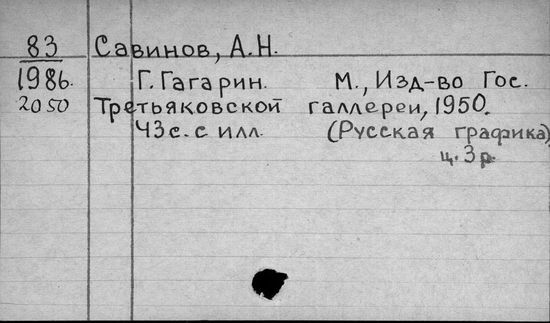 83 Савинов, А.Н.
1986. Г. Гагарин. М., Изд-во Гос.
2050 Третьяковской галлереи, 1950.
43с. с илл. (Русская графика)
ц. 3 р.